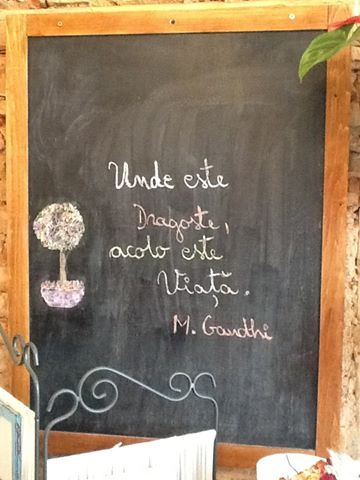 Unde este
Dragoste,
acolo este
Viață.
M. Gandhi